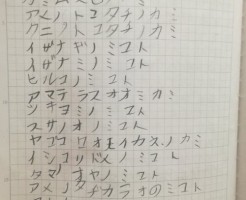 アメノトコタチノカミ
クニノトコタチノカミ
イザナギノミコト
イザナミノミコト
ヒルコノミコト
アマテラスオオミカミ
ツキヨミノミコト
スサノオノミコト
ヤゴコロオモイカネノカミ
イシコリドメノミコト
タマノオヤノミコト
アメノタヂカラオのミコト